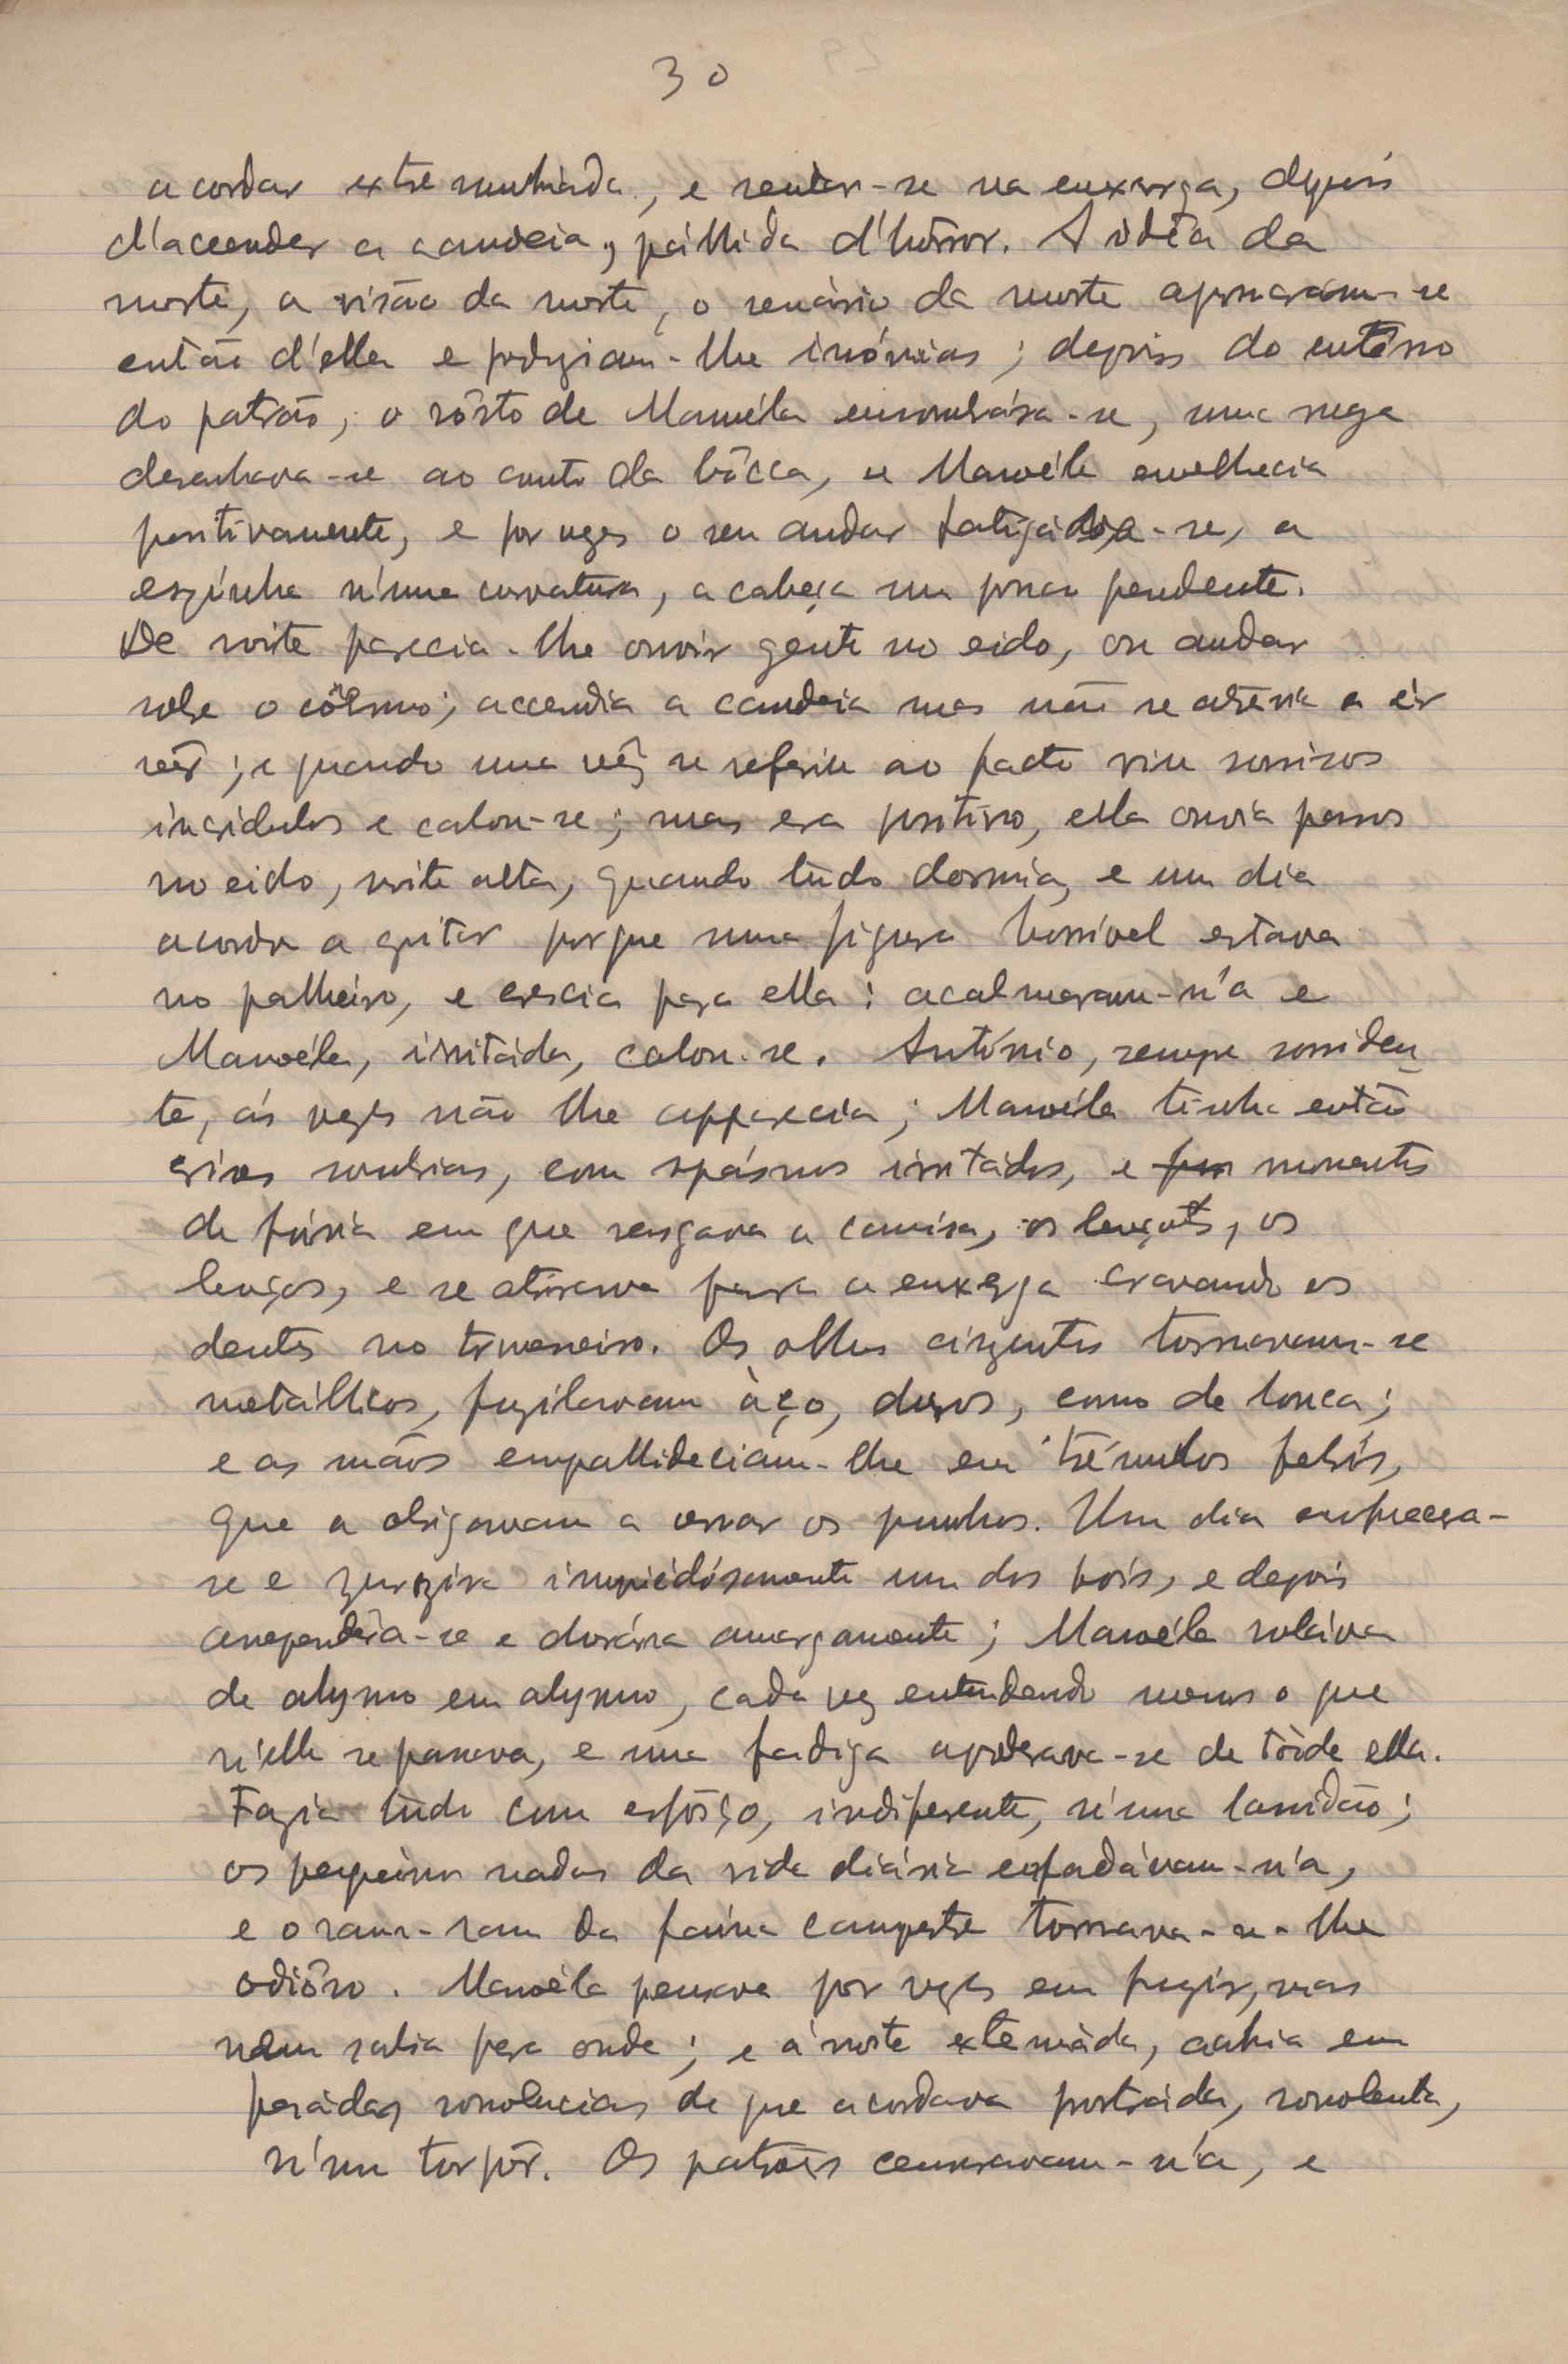 30
acordar extremunhada, e sentar-se na enxerga, depois
d'accender a candeia, pállida d'hôrror. A idêa da
morte, a visão da morte, o scenário da morte apossáram-se
então d'ella e pungiam-lhe insónias; depois do entêrro
do patrão, o rôsto de Manoéla ensombrára-se, uma ruga
desenhava-se ao canto da bôcca, e Manoéla envelhecia
positivamente, e por vezes o seu andar fatigáva-se, a
espinha n'uma curvatura, a cabeça um pouco pendente.
De noite parecia-lhe ouvir gente no eido, ou andar
sobe o côlmo; accendia a candeia mas não se atrevia a ir
vêr; e quando uma vêz se referiu ao facto viu sorrisos
incrédulos e calou-se; mas era positivo, ella ouvia passos
no eido, noite alta, quando tudo dormia, e um dia
acorda a gritar porque uma figura horrível estava
no palheiro, e crescia para ella: acalmaram-n'a e
Manoéla, irritáda, calou-se. António, sempre sorriden-
te, ás vezes não lhe apparecia; Manoéla tinha então
crises sombrias, com spásmos irritádos, e momentos
de fúria em que rasgava a camisa, os lençóes, os
lenços, e se atirava para a enxerga cravando os
dentes no travesseiro. Os olhos cinzentos tornavam-se
metállicos, fuzilavam àço, duros, como de louca;
e as mãos empallideciam-lhe em trémulos febrís,
que a obrigavam a cerrar os punhos. Um dia enfurecera-
se e zurzira impiedósamente um dos bois, e depois
arrependêra-se e chorára amargamente; Manoéla rolava
de abysmo em abysmo, cada vez entendendo menos o que
n'ella se passava, e uma fadiga apoderava-se de tôda ella.
Fazia tudo com esfôrço, indiferente, n'uma lassidão;
os pequeninos nadas da vida diária enfadávam-n'a,
e o ram-ram da faina campestre tornava-se-lhe
odiôso. Manoéla pensava por vezes em fugir, mas
nem sabia para onde; e á noite extenuáda, cahia em
pesádas sonolencias de que acordava prostráda, sonolenta,
n'um torpôr. Os patrões censuravam-n'a, e